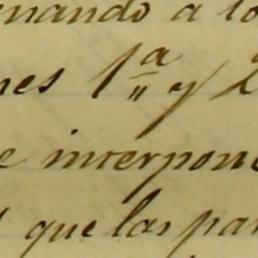 nando a lo
nes 1ª y 2
e interpone
que las par